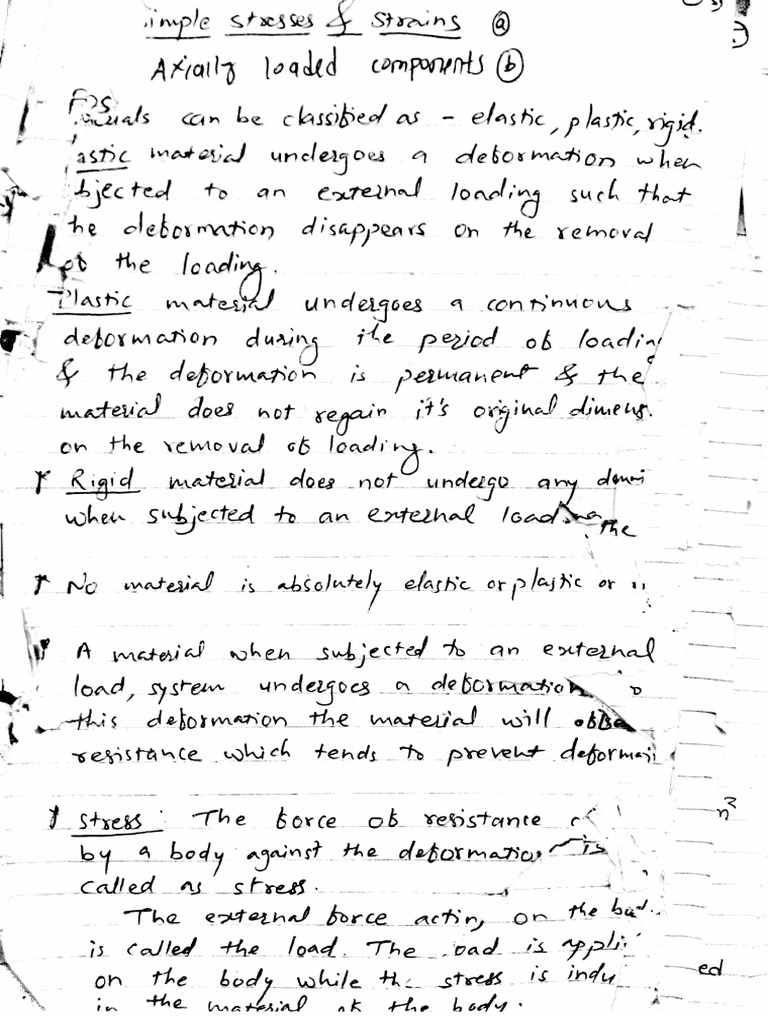 imple stresses & strains (a)
Axially loaded components (b)
can be classified as - elastic, plastic, rigid.
astic material undergoes a deformation when
bjected to an external loading such that
he deformation disappears on the removal
of the loading.
Plastic material undergoes a continuous
deformation during the period of loading
& the deformation is permanent & the
material does not regain it's original dimens.
on the removal of loading.
* Rigid material does not undergo any
when subjected to an external
the
* No material is absolutely elastic or plastic or
A material when subjected to an external
load, system undergoes a deformation
this deformation the material will
resistance which tends to prevent deformati
n²
* Stress: The force of resistance
by a body against the deformation is
called as stress.
The external force acting on the
is called the load. The oad is appli
on the body while the stress is indu
ed
in the material of the body.